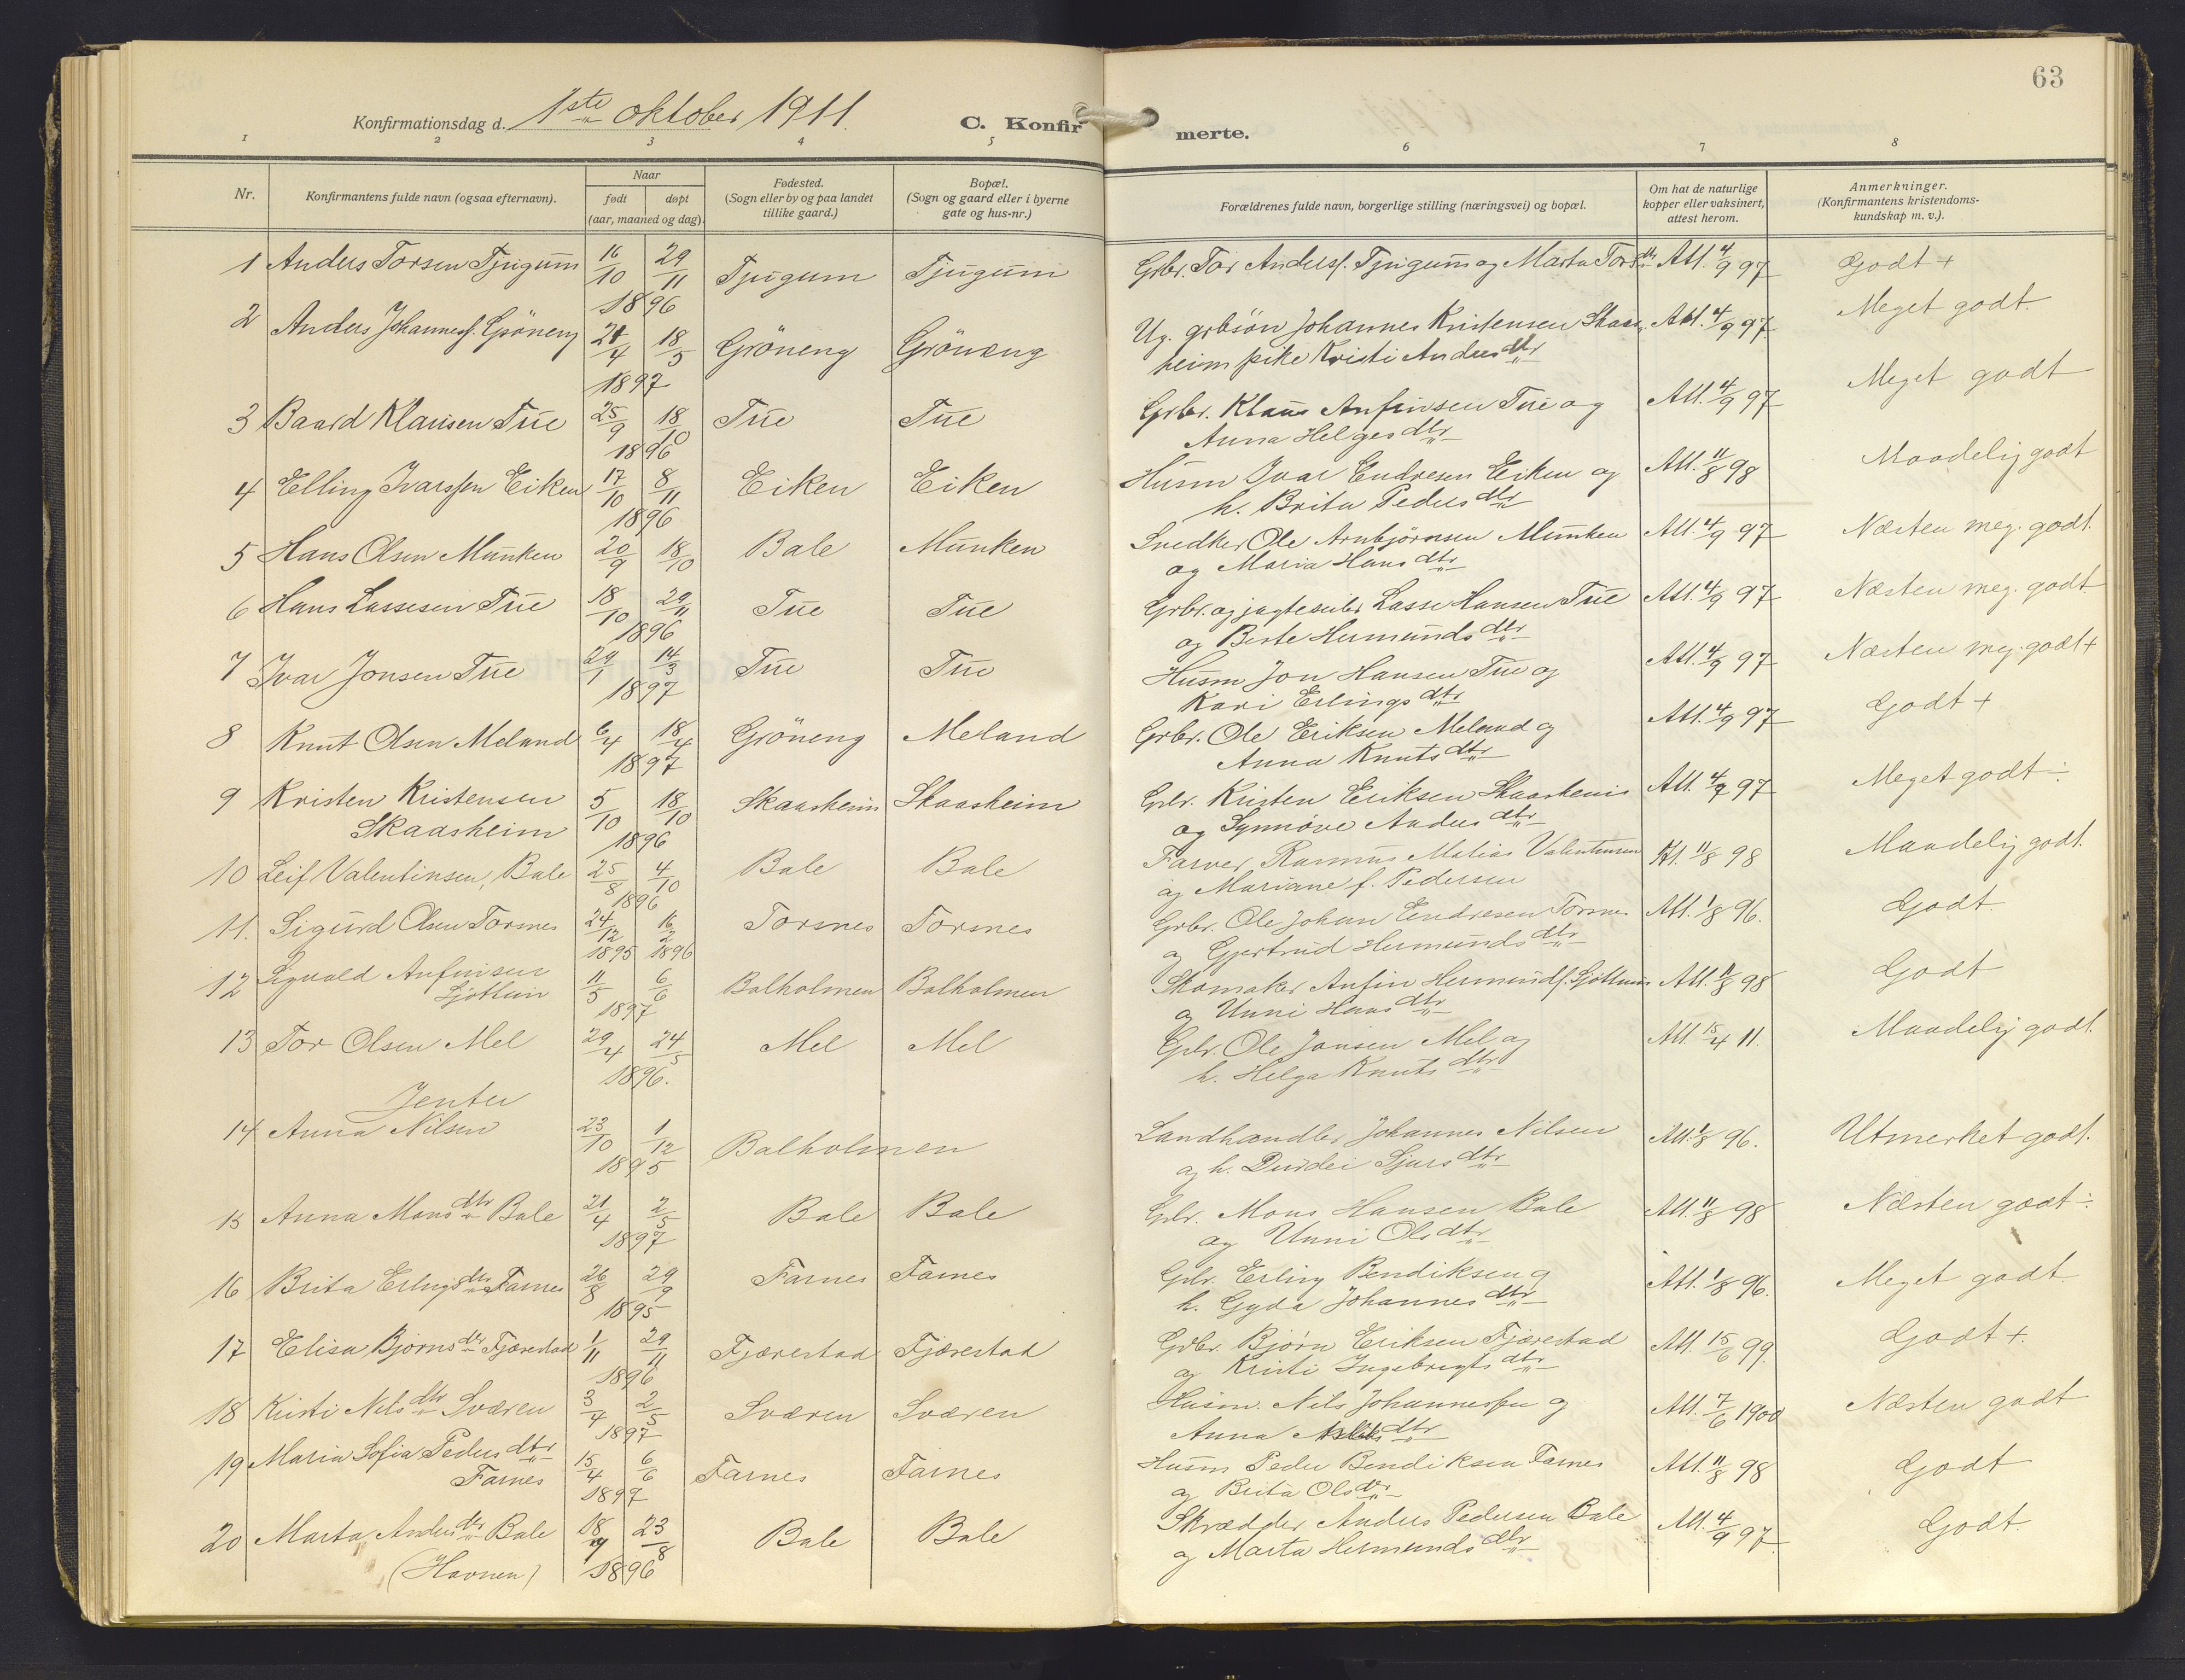 63
Konfirmationsdag d. 1ste oktober 1911.
C. Konfirmerte.
1 2 3 4 5 6 7 8
Nr.
Konfirmantens fulde navn (ogsaa efternavn).
Naar
født døpt
(aar, maaned og dag).
Fødested.
(Sogn eller by og paa landet
tillike gaard.)
Bopæl.
(Sogn og gaard eller i byerne
gate og hus-nr.)
Forældrenes fulde navn, borgerlige stilling (næringsvei) og bopæl.
Om hat de naturlige
kopper eller vaksinert,
attest herom.
Anmerkninger.
(Konfirmantens kristendoms-
kundskap m. v.).
1 Anders Torsen Tjugum 16/10 29/11 Tjugum Tjugum Grbr. Tor Anderss. Tjugum og Marta Torsdtr Att. 4/9 97 Godt +
1896
2 Anders Johanness. Gröneng 21/4 18/5 Gröneng Gröneng Ug. grbsön Johannes Kristensen Skaas- Att. 4/9 97 Meget godt.
1897 heim pike Kristi Andersdtr
3 Baard Klausen Tue 25/9 18/10 Tue Tue Grbr. Klaus Anfinsen Tue og Att. 4/9 97 Meget godt
1896 Anna Helgesdtr
4 Elling Ivarssen Eiken 17/10 8/11 Eiken Eiken Husm Ivar Endresen Eiken og Att. 11/8 98 Maadelig godt
1896 h. Brita Pedersdtr
5 Hans Olsen Munken 20/9 18/10 Bale Munken Snedker Ole Arnbjörnsen Munken Att. 4/9 97 Næsten meg. godt.
og Maria Hansdtr
6 Hans Lassesen Tue 18/10 29/11 Tue Tue Grbr. og jagteseiler Lasse Hansen Tue Att. 4/9 97 Næsten meg. godt
1896 og Berte Hermundsdtr
7 Ivar Jonsen Tue 29/1 14/3 Tue Tue Husm Jon Hansen Tue og Att. 4/9 97 Næsten meg. godt +
1897 Kari Erlingsdtr
8 Knut Olsen Meland 6/4 18/4 Gröneng Meland Grbr. Ole Eriksen Meland og Att. 4/9 97 Godt +
1897 Anna Knutsdtr
9 Kristen Kristensen 5/10 18/10 Skaasheim Skaasheim Grbr. Kristen Eriksen Skaasheim Att. 4/9 97 Meget godt ÷
Skaasheim 1896 og Synnöve Andersdtr
10 Leif Valentinsen, Bale 25/8 4/10 Bale Bale Farver Rasmus Matias Valentinsen Att. 11/8 98 Maadelig godt.
1896 og Mariane f. Pedersen
11. Sigurd Olsen Torsnes 24/12 16/2 Torsnes Torsnes Grbr. Ole Johan Endresen Torsnes Att. 1/8 96. Godt.
1895 1896 og Gjertrud Hermundsdtr
12 Sigvald Anfinsen 11/5 6/6 Balholmen Balholmen Skomaker Anfin Hermunds. Sjöthun Att. 11/8 98 Godt
Sjöthun 1897 og Unni Hansdtr
13 Tor Olsen Mel 29/4 24/5 Mel Mel Grbr. Ole Jonsen Mel og Att. 15/4 11. Maadelig godt.
1896. h. Helga Knutsdtr
Jenter
14 Anna Nilsen 23/10 1/12 Balholmen Landhandler Johannes Nilsen Att. 1/8 96. Utmerket godt.
1895 og h. Durdei Sjursdtr
15 Anna Monsdtr Bale 21/4 2/5 Bale Bale Grbr. Mons Hansen Bale Att. 11/8 98 Næsten godt ÷
1897 og Unni Olsdtr
16 Brita Erlingsdtr Farnes 26/8 29/9 Farnes Farnes Grbr. Erling Bendiksen og Att. 1/8 96. Meget godt.
1895 h. Gyda Johannesdtr
17 Elisa Bjørnsdtr Fjærestad 1/11 29/11 Fjærestad Fjærestad Grbr. Bjørn Eriksen Fjærestad Att. 15/6 99. Godt +.
1896 og Kristi Ingebrigtsdtr
18 Kristi Nilsdtr Sværen 3/4 2/5 Sværen Sværen Husm. Nils Johannessen og Att. 7/6 1900 Næsten godt
1897 Anna dtr
19 Maria Sofia Pedersdtr 15/4 6/6 Farnes Farnes Husm Peder Bendiksen Farnes Att. 11/8 98 Godt
Farnes 1897 og Brita Olsdtr
20 Marta Andersdtr Bale 18/7 23/8 Bale Bale Skrædder Anders Pedersen Bale Att. 4/9 97. Godt.
(Havnen) 1896 og Marta Hermundsdtr